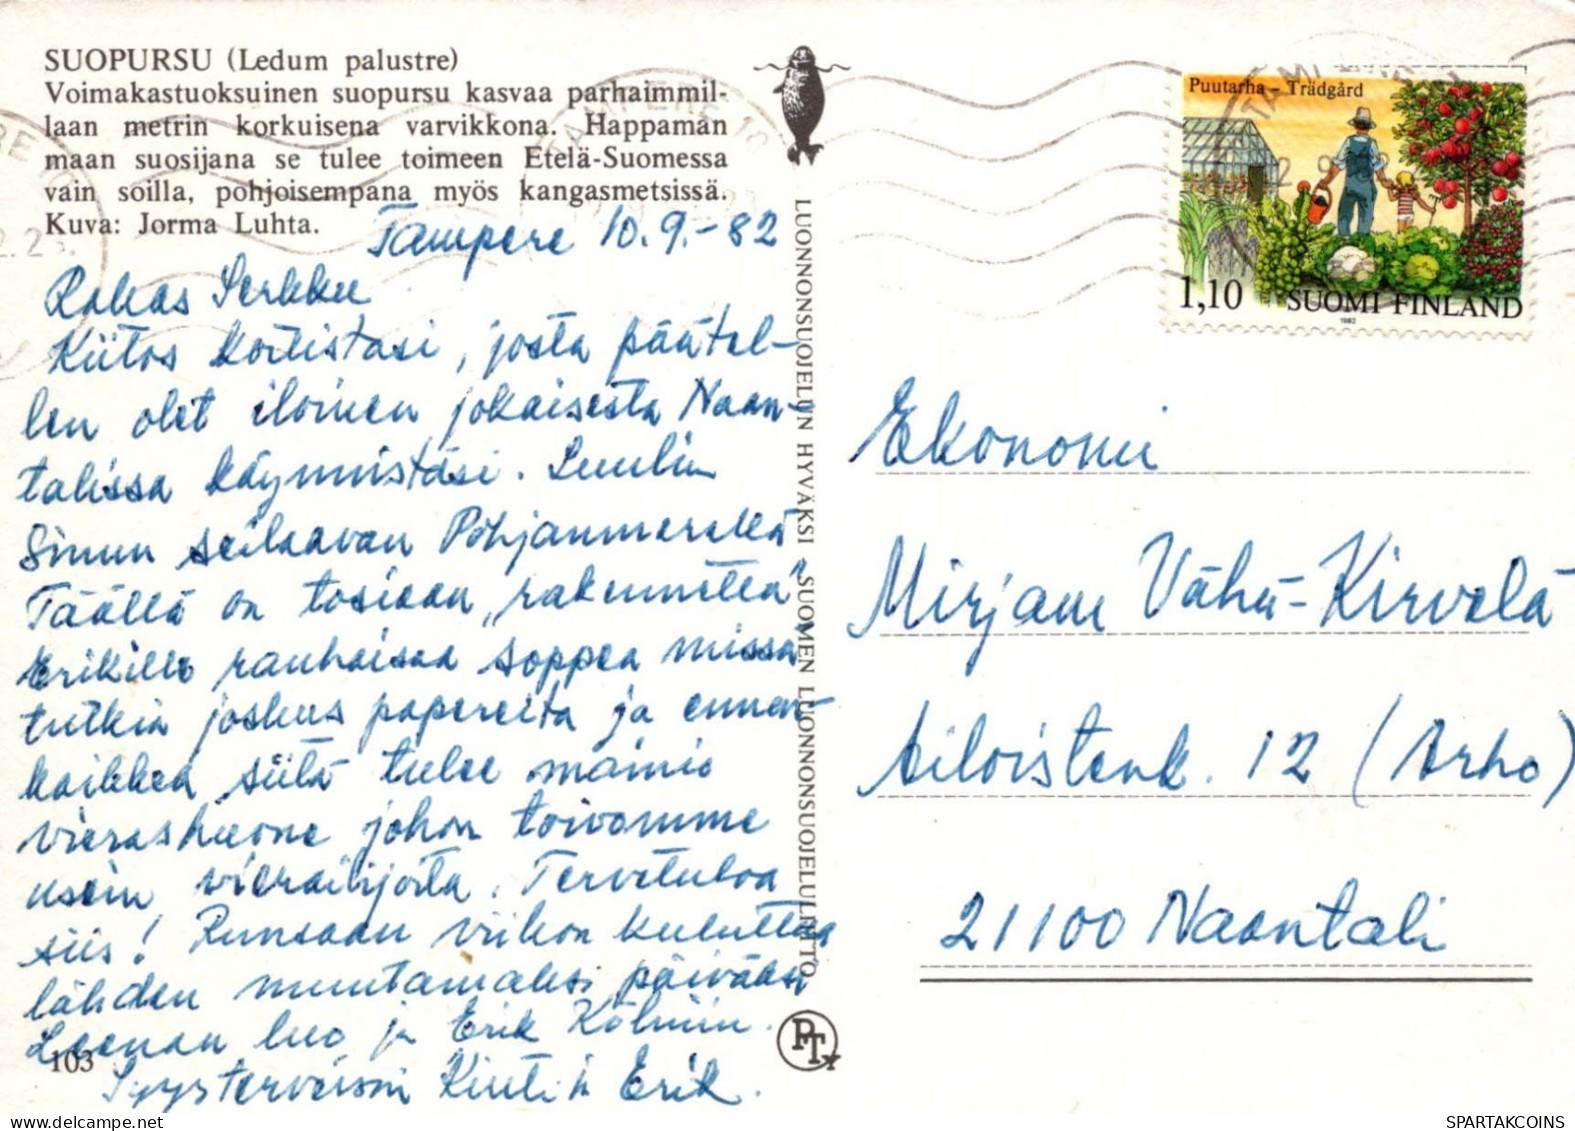 SUOPURSU (Ledum palustre)
Voimakastuoksuinen suopursu kasvaa parhaimmil-
laan metrin korkuisena varvikkona. Happaman
maan suosijana se tulee toimeen Etelä-Suomessa
vain soilla, pohjoisempana myös kangasmetsissä.
Kuva: Jorma Luhta.
Tampere 10.9.-82
Rakas Serkku
Kiitos kortistasi, josta päätel-
len olet iloinen jokaisesta Naan-
talissa käynnistäsi. Luulin
Sinun seilaavan Pohjanmerellä
Täällä on tosiaan "rakennettu"
Erikille rauhaisaa soppea missä
tutkia joskus papereita ja ennen-
kaikkea siitä tulee mainio
vierashuone johon toivomme
usein vierailijoita. Tervetuloa
siis! Runsaan viikon kuluttua
lähden muutamaksi päiväksi
Leenan luo ja Erik Kölniin.
Syysterveisin Kirsti ja Erik.
103
LUONNONSUOJELUN HYVÄKSI SUOMEN LUONNONSUOJELULIITTO
PT
TAMPERE 10
Puutarha - Trädgård
1,10 SUOMI FINLAND
1982
Ekonomi
Mirjam Vähä-Kirvelä
Ailoistenk. 12 (Arho)
21100 Naantali
SPARTAKCOINS